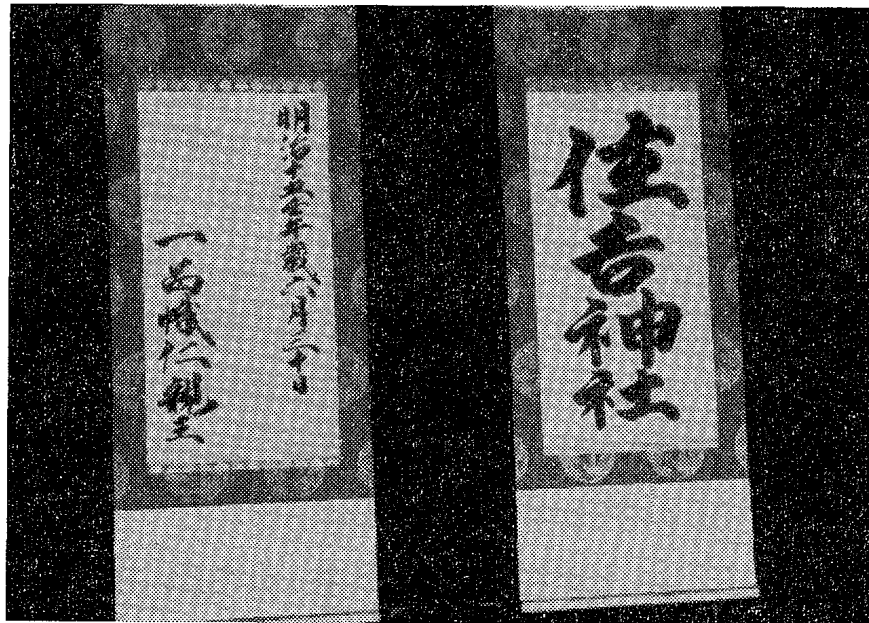 住吉神社
明治十五年六月二十日
一品幟仁親王